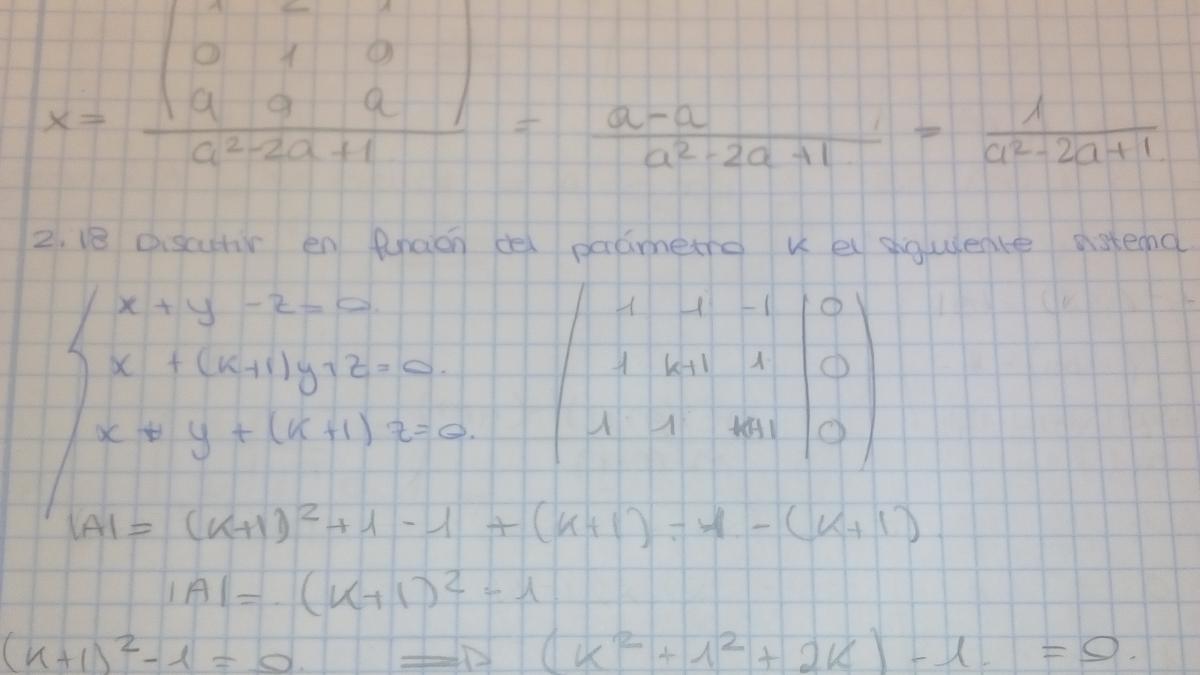 1 2 1
0 1 0
a a a
x = ——— = a-a / a²-2a+1 = 1 / a²-2a+1
a²-2a+1
2.18 Discutir en función del parámetro K el siguiente sistema
x + y - z = 0. 1 1 -1 | 0
x + (K+1)y + z = 0. 1 K+1 1 | 0
x + y + (K+1) z = 0. 1 1 K+1 | 0
|A| = (K+1)² + 1 - 1 + (K+1) - 1 - (K+1)
|A| = (K+1)² - 1
(K+1)² - 1 = 0. ⇒ (K² + 1² + 2K) - 1. = 0.